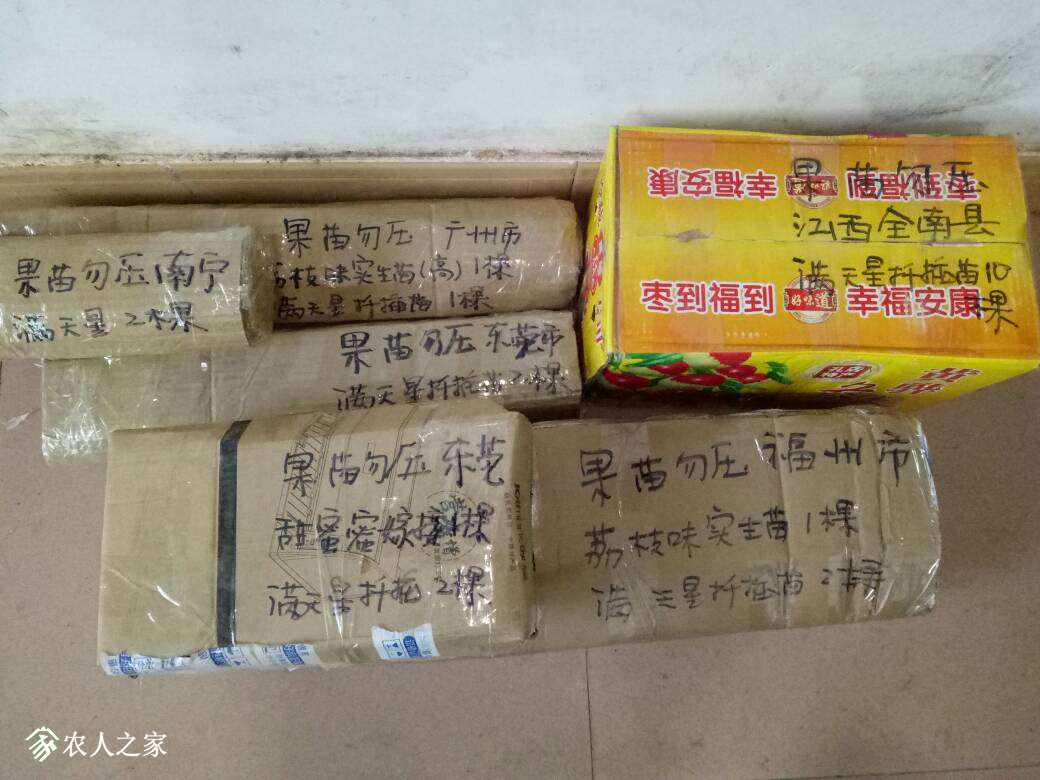 果苗勿压 广州市
荔枝味实生苗(高)1棵
满天星扦插苗 1棵
果苗勿压 南宁
满天星 2棵
果苗勿压 东莞市
满天星扦插苗2棵
枣到福到 好味道 幸福安康
果苗勿压
江西全南县
满天星扦插苗10
棵
枣到福到 好味道 幸福安康
果苗勿压 东莞
甜蜜蜜嫁接1棵
满天星扦插 2棵
果苗勿压 福州市
荔枝味实生苗1棵
满天星扦插苗 2棵
农人之家